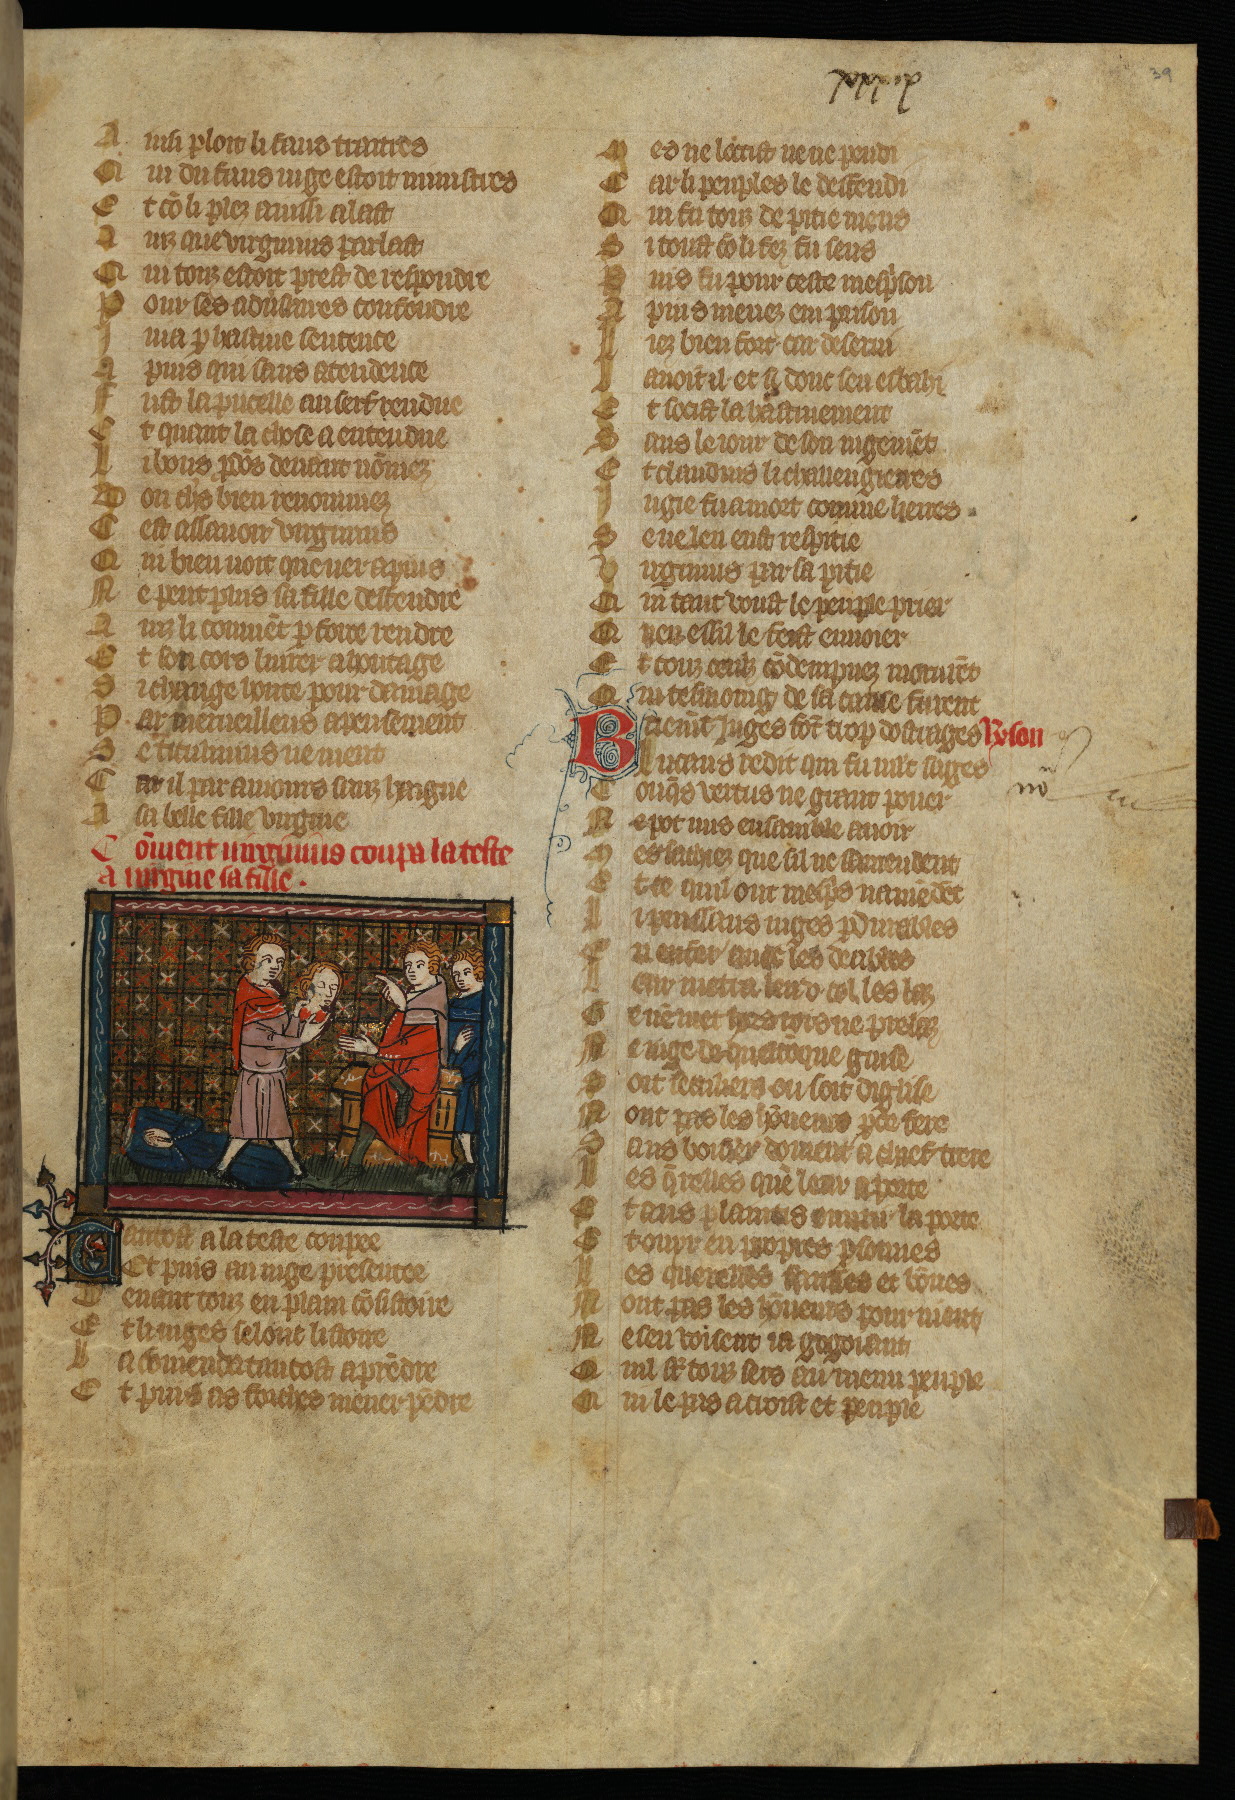 xxxix
39
A insi ploit li faus traitres
Q ui du faus iuge estoit ministres
E t cō li plez ainssi alast
A inz que virginius parlast
Q ui touz estoit prest de respondre
P our ses aduersaires confondre
J uia p hastiue sentence
A pius qui sans atendence
F ust la pucelle au serf rendue
E t quant la chose a entendue
L i bons pdōs deuant nōmez
B on chrs bien renommez
C est assauoir virginius
Q ui bien uoit que uer apius
N e peut pius sa fille deffendre
A inz li conuēt p force rendre
E t son cors liurer a hontage
S i change honte pour damage
P ar merueilleus apensement
S e titulinius ne ment
C ar il par amours sanz hayngne
A sa belle fille virgine
C ōment uirginius coupa la teste
a uirgine sa fille .
Tantost a la teste coupee
Et puis au iuge presentee
D euant touz en plain cōsistoire
E t li iuges selonc listoire
L a cōmenda tantost a prēdre
E t puis as forches mener pēdre
M es ne locist ne ne pendi
C ar li peuples le deffendi
Q ui fu touz de pitie meus
S i tost cō li fez fu seus
P uis fu pour ceste mesprison
A pius menez em prison
L iez bien fort car deserui
L auoit il et
E t socist la hastiuement
D ans le iour de son iugemēt
E t claudius li chalengieres
J ugie fu a mort comme lierres
S e ne leu eust respitie
V irginius par sa pitie
Q ui tant voust le peuple prier
Q uen essil le feist enuoier
E t touz ceulz cōdempnez morurēt
Q ui tesmoing de sa cause furent
Briemēt Juges font trop doutrages Rayson
Lucans redit qui fu mlt sages
C onqs vertus ne grant pouer
N e pot nus ensamble auoir
M es sachiez que sil ne samendent
E t ce quil ont mespris namēdēt
L i puissans iuges pdurables
E n enfer auec les deables
L eur metra leu v col les laz
G e nē met hors rois ne prelaz
N e iuge de quelcōque guise
S oit seculiers ou soit deglise
N ont pas les hōneurs pce fere
S ans doiuent a chief trere
L es qrelles que leur aporte
E t aus plaintis ouurir la porte
E t oyr en propres psonnes
L es querelles fausses et bōnes
N ont pas les hōneurs pour nient
N e seu voisent ia gogoiant
Q uil st touz sers au menu peuple
Q ui le pais acroist et peuple